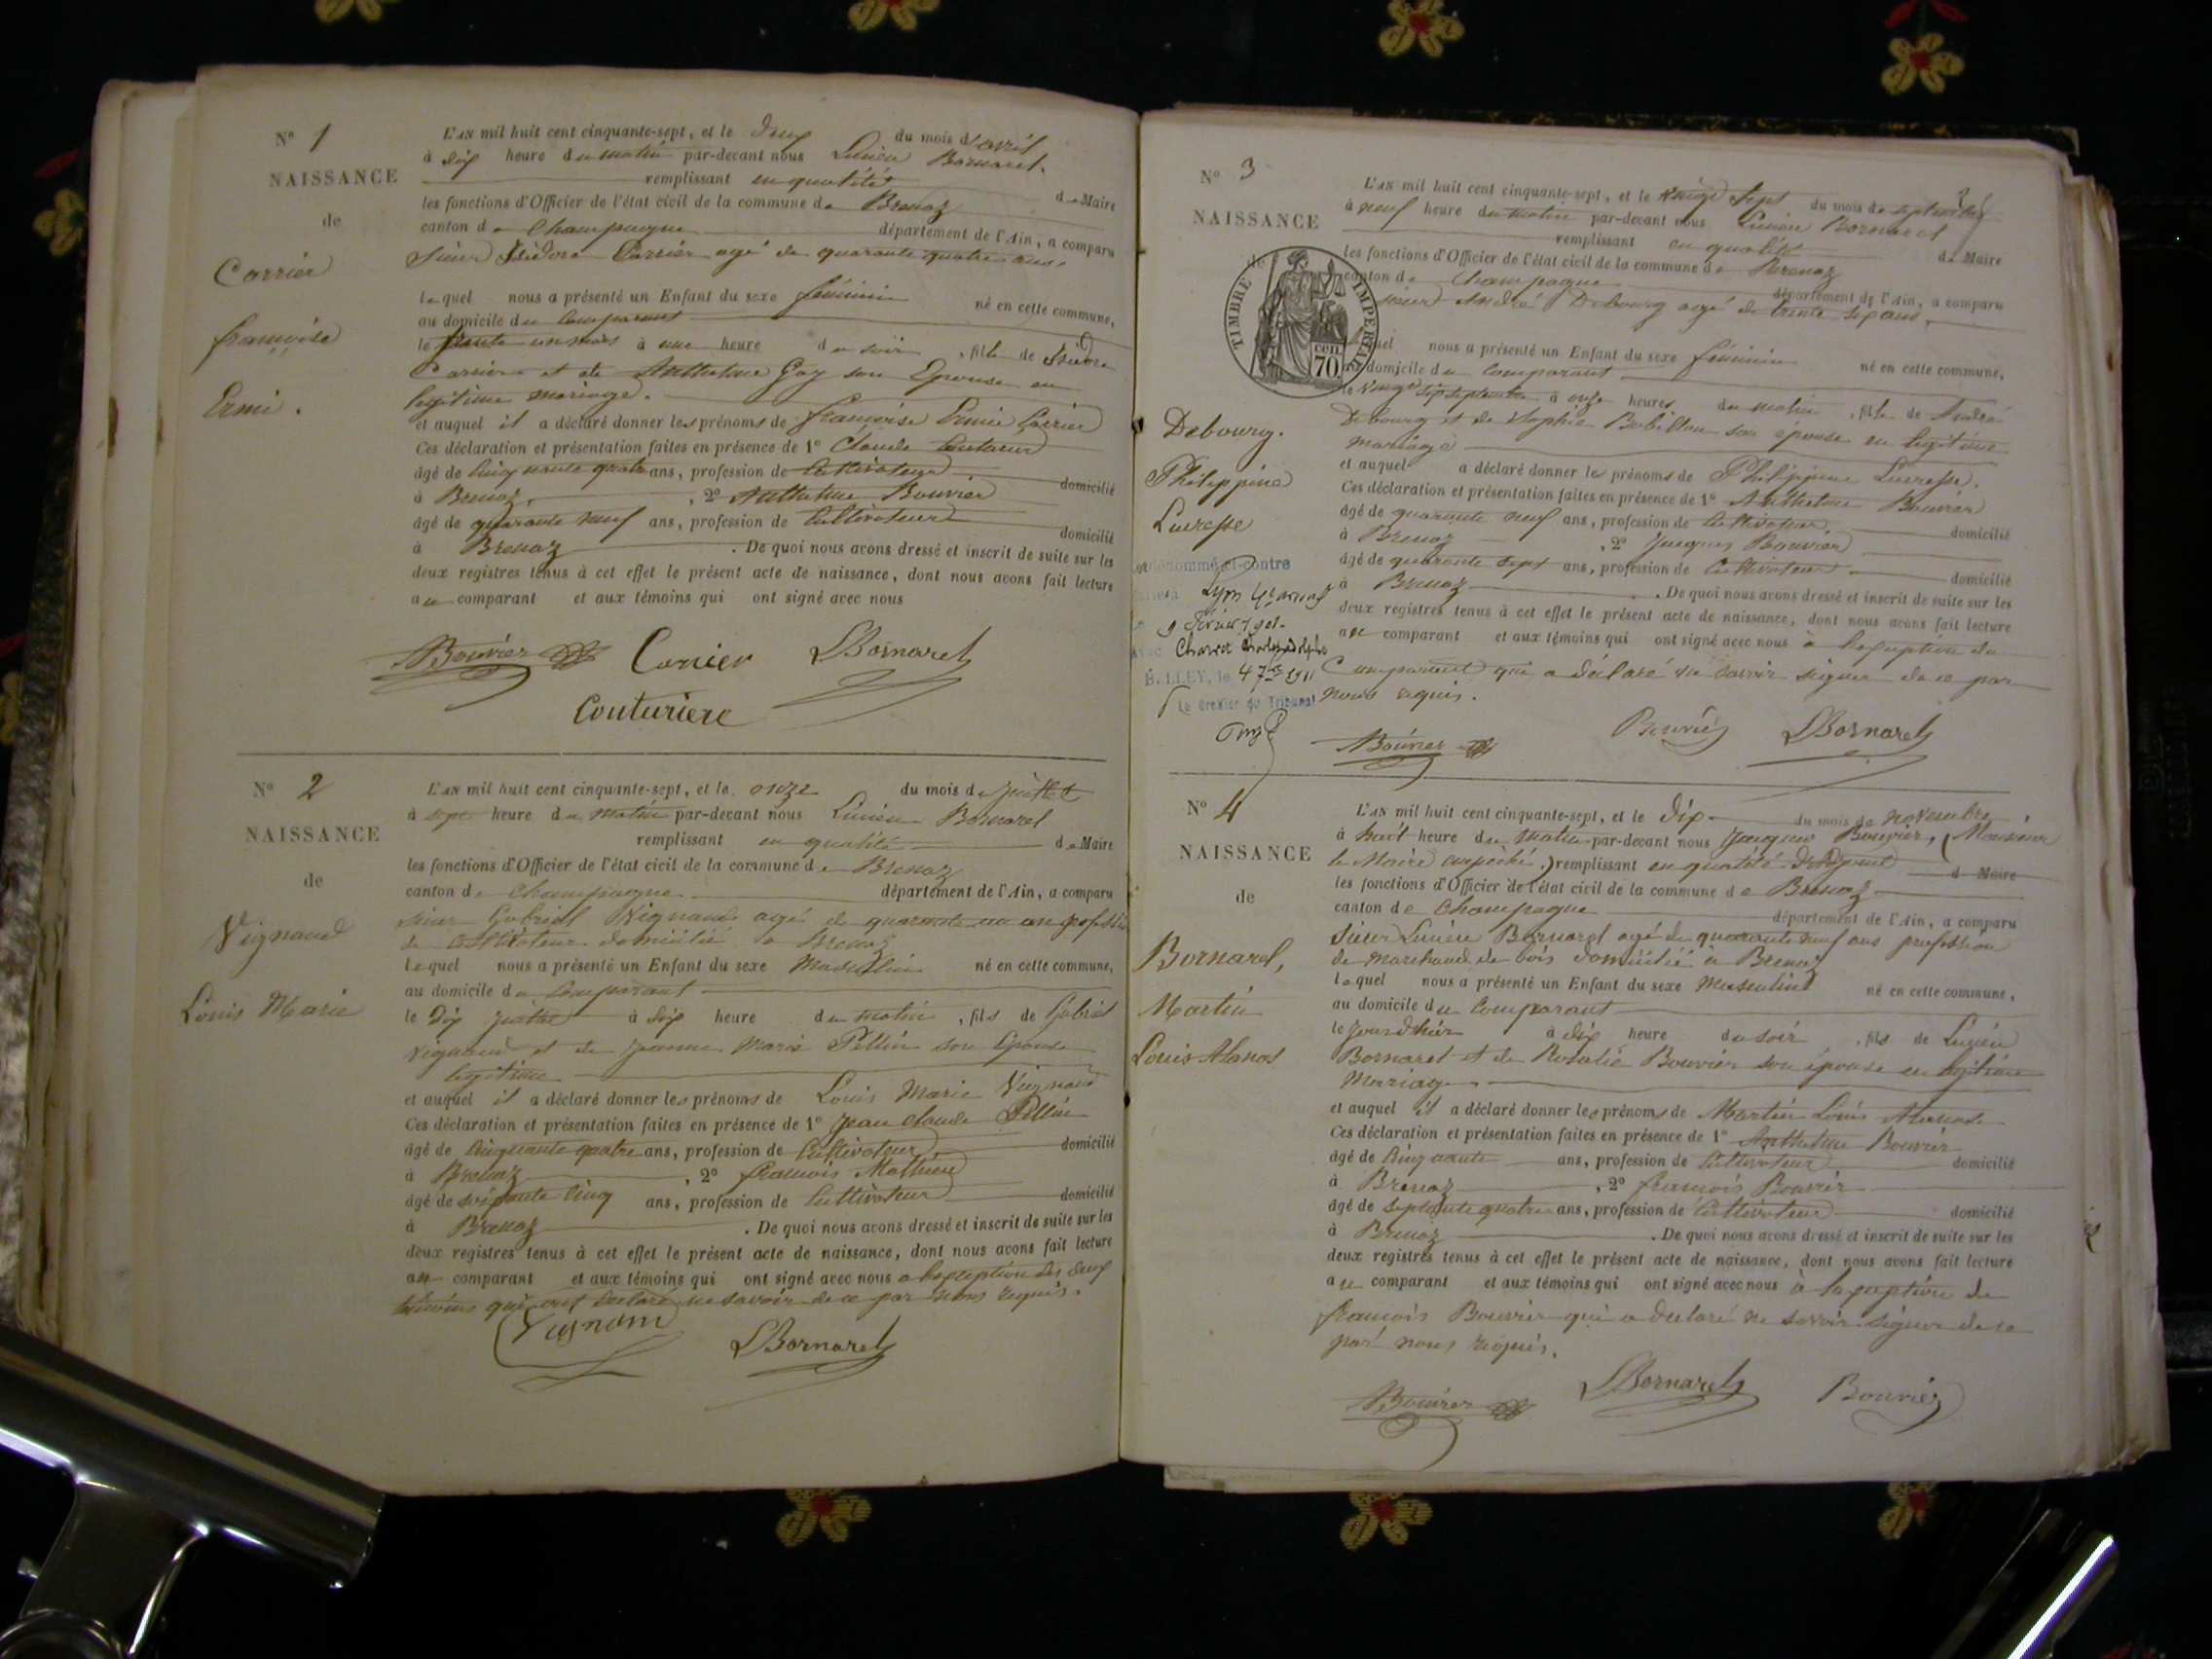 N° 1
NAISSANCE
de
Carrier
françoise
Ermi.
L'AN mil huit cent cinquante-sept, et le deux du mois d'avril
à dix heure du matin par-devant nous Lucien Bornarel.
remplissant en qualité de Maire
les fonctions d'Officier de l'état civil de la commune de Brenaz
canton de Champagne département de l'Ain, a comparu
sieur Isidore Carrier agé de quarante quatre ans.
lequel nous a présenté un Enfant du sexe féminin né en cette commune,
au domicile du Comparant
le trente un mars à une heure du soir, fille de Isidore
Carrier et de Anthelme Goy son Epouse en
légitime mariage.
et auquel il a déclaré donner les prénoms de françoise Ermie Carrier
Ces déclaration et présentation faites en présence de 1° Claude
âgé de Cinquante quatre ans, profession de Cultivateur domicilié
à Brenaz, 2° Anthelme Bouvier
âgé de quarante neuf ans, profession de Cultivateur domicilié
à Brenaz. De quoi nous avons dressé et inscrit de suite sur les
deux registres tenus à cet effet le présent acte de naissance, dont nous avons fait lecture
au comparant et aux témoins qui ont signé avec nous
Bouvier Carrier LBornarel
Couturiere
N° 2
NAISSANCE
de
Vignaud
Louis Marie
L'AN mil huit cent cinquante-sept, et le onze du mois de juillet
à sept heure du matin par-devant nous Lucien Bornarel
remplissant en qualité de Maire
les fonctions d'Officier de l'état civil de la commune de Brenaz
canton de Champagne département de l'Ain, a comparu
sieur Gabriel Vignaud agé de quarante un an profession
de Cultivateur domicilié à Brenaz
lequel nous a présenté un Enfant du sexe Masculin né en cette commune,
au domicile du Comparant
le Dix juillet à dix heure du matin, fils de Gabriel
Vignaud et de Jeanne Marie Pellin son Epouse
légitime
et auquel il a déclaré donner les prénoms de Louis Marie Vignaud
Ces déclaration et présentation faites en présence de 1° Jean Claude Pellin
âgé de Cinquante quatre ans, profession de Cultivateur domicilié
à Brenaz, 2° françois Mathieu
âgé de soixante Cinq ans, profession de Cultivateur domicilié
à Brenaz. De quoi nous avons dressé et inscrit de suite sur les
deux registres tenus à cet effet le présent acte de naissance, dont nous avons fait lecture
au comparant et aux témoins qui ont signé avec nous a lexception des deux
témoins qui ont déclaré ne savoir de ce par nous requis.
Vignaud LBornarel
N° 3
NAISSANCE
de
TIMBRE IMPERIAL
70 cen.
Debourg.
Philippine
Lucresse
ci-contre
Lyon
9 février 1901.
Charvet
BELLEY, le 4 7bre 1911
Le Greffier du Tribunal
L'AN mil huit cent cinquante-sept, et le vingt sept du mois de septembre
à neuf heure du matin par-devant nous Lucien Bornarel
remplissant en qualité de Maire
les fonctions d'Officier de l'état civil de la commune de Brenaz
canton de Champagne département de l'Ain, a comparu
sieur André Debourg agé de trente six ans,
lequel nous a présenté un Enfant du sexe féminin né en cette commune,
au domicile du Comparant
le à onze heures du matin, fille de André
Debourg et de Sophie Bobillon son épouse en légitime
mariage
et auquel a déclaré donner les prénoms de Philippine Lucresse.
Ces déclaration et présentation faites en présence de 1° Anthelme Bouvier
âgé de quarante neuf ans, profession de Cultivateur domicilié
à Brenaz, 2° Jacques Bouvier
âgé de quarante sept ans, profession de Cultivateur domicilié
à Brenaz. De quoi nous avons dressé et inscrit de suite sur les
deux registres tenus à cet effet le présent acte de naissance, dont nous avons fait lecture
au comparant et aux témoins qui ont signé avec nous à lexception du
Comparant qui a déclaré ne savoir signer de ce par
nous requis.
Bouvier Bouvier LBornarel
N° 4
NAISSANCE
de
Bornarel,
Martin
Louis
L'AN mil huit cent cinquante-sept, et le dix du mois de novembre
à huit heure du matin par-devant nous Jacques Bouvier, (Monsieur
le Maire empêché,) remplissant en qualité d'adjoint de Maire
les fonctions d'Officier de l'état civil de la commune de Brenaz
canton de Champagne département de l'Ain, a comparu
Sieur Lucien Bornarel agé de quarante neuf ans profession
de marchand de bois domicilié à Brenaz
lequel nous a présenté un Enfant du sexe Masculin né en cette commune,
au domicile du Comparant
le à dix heure du soir, fils de Lucien
Bornarel et de Rosalie Bouvier son épouse en légitime
Mariage.
et auquel il a déclaré donner les prénoms de Martin Louis
Ces déclaration et présentation faites en présence de 1° Anthelme Bouvier
âgé de Cinquante ans, profession de Cultivateur domicilié
à Brenaz, 2° françois Bouvier
âgé de septante quatre ans, profession de Cultivateur domicilié
à Brenaz. De quoi nous avons dressé et inscrit de suite sur les
deux registres tenus à cet effet le présent acte de naissance, dont nous avons fait lecture
au comparant et aux témoins qui ont signé avec nous à lexception de
françois Bouvier qui a déclaré ne savoir signer de ce
par nous requis.
Bouvier LBornarel Bouvier